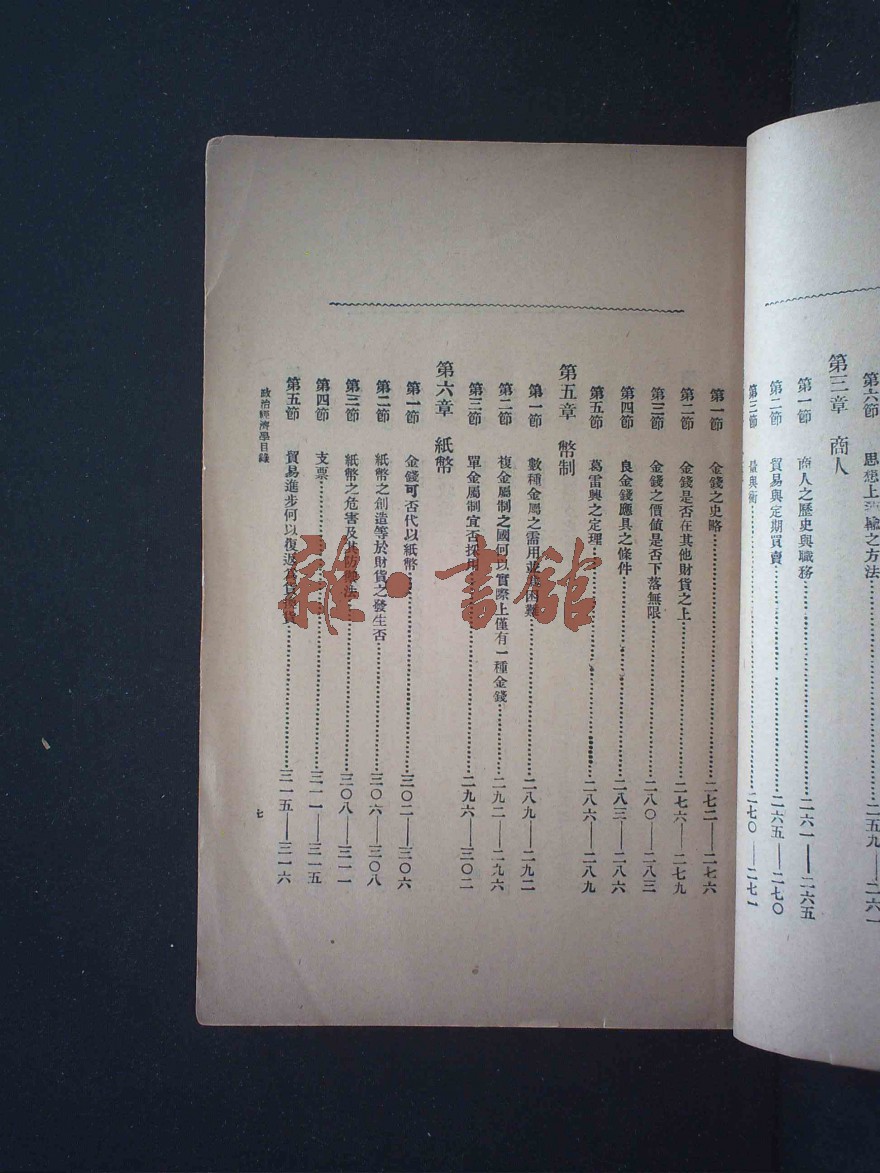 第六節 思想上 之方法……二五九——二六一
第三章 商人
第一節 商人之歷史與職務……二六一——二六五
第二節 貿易與定期買賣……二六五——二七〇
第三節 量與衡……二七〇——二七一
第一節 金錢之史略……二七二——二七六
第二節 金錢是否在其他財貨之上……二七六——二七九
第三節 金錢之價值是否下落無限……二八〇——二八三
第四節 良金錢應具之條件……二八三——二八六
第五節 葛雷興之定理……二八六——二八九
第五章 幣制
第一節 數種金屬之需用並其困難……二八九——二九二
第二節 複金屬制之國何以實際上僅有一種金錢……二九二——二九六
第三節 單金屬制宜否採用……二九六——三〇二
第六章 紙幣
第一節 金錢可否代以紙幣……三〇二——三〇六
第二節 紙幣之創造等於財貨之發生否……三〇六——三〇八
第三節 紙幣之危害及其防禦法……三〇八——三一一
第四節 支票……三一一——三一五
第五節 貿易進步何以復返 貨……三一五——三一六
政治經濟學目錄
七
雜·書館